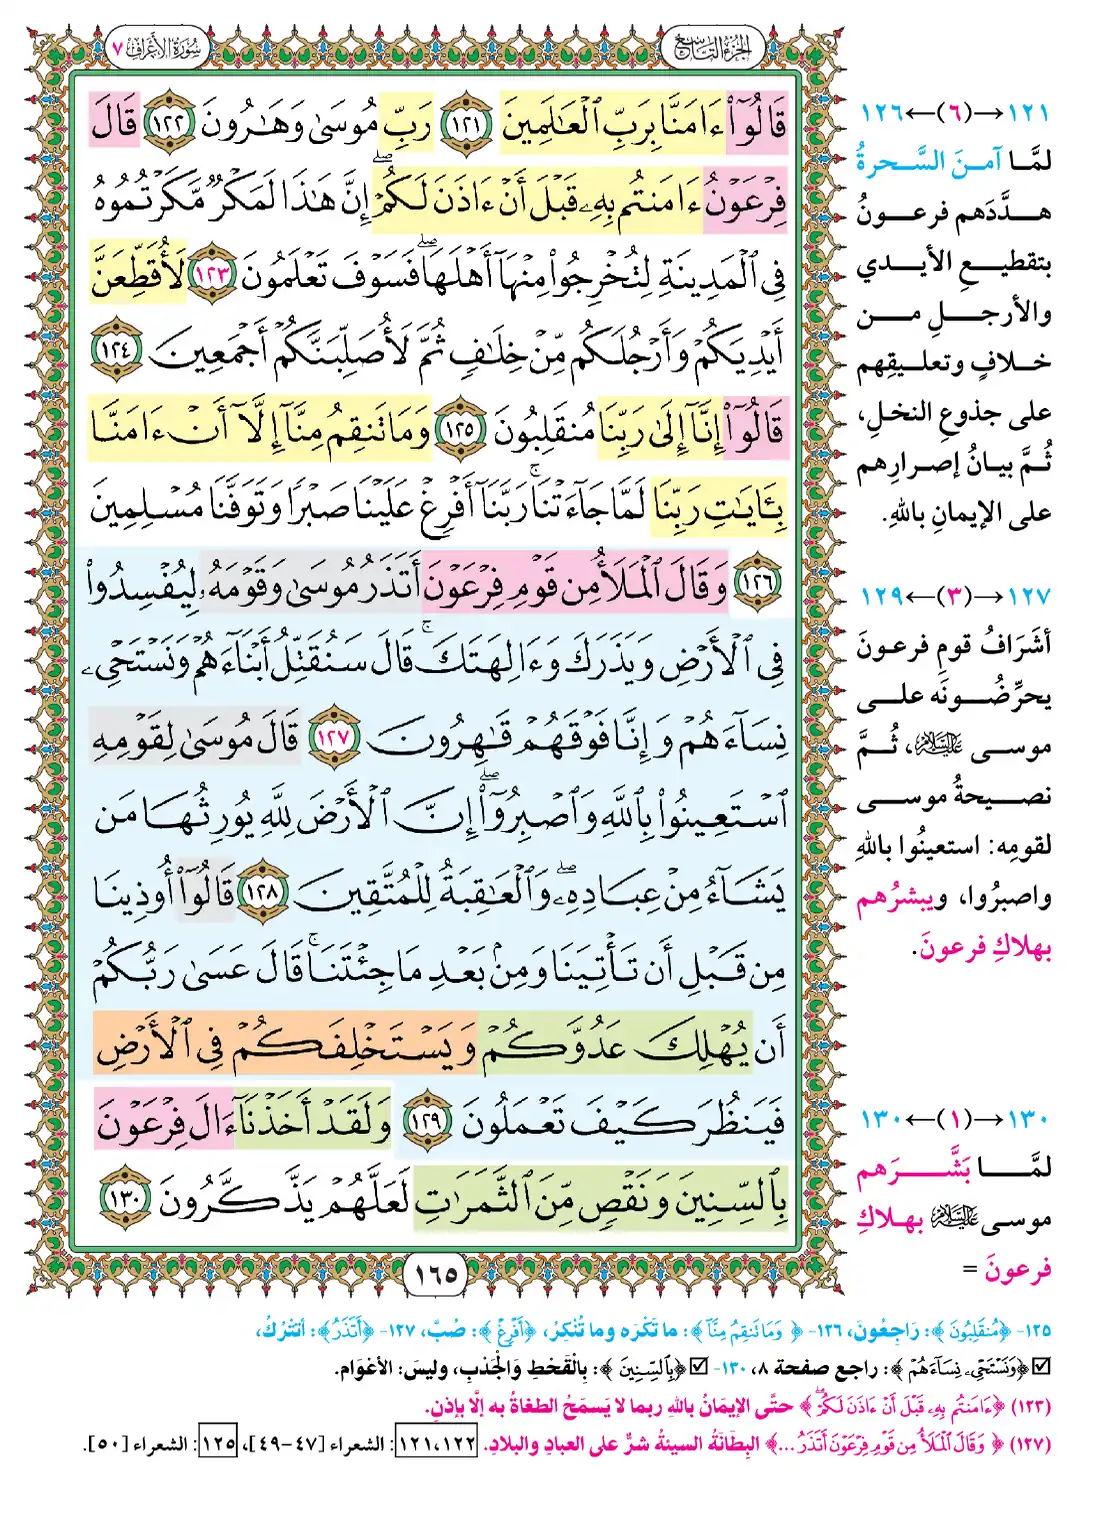 الجزء التاسع
سورة الأعراف ٧
قَالُوٓا۟ ءَامَنَّا بِرَبِّ ٱلْعَٰلَمِينَ ١٢١ رَبِّ مُوسَىٰ وَهَٰرُونَ ١٢٢ قَالَ
فِرْعَوْنُ ءَامَنتُم بِهِۦ قَبْلَ أَنْ ءَاذَنَ لَكُمْ ۖ إِنَّ هَٰذَا لَمَكْرٌ مَّكَرْتُمُوهُ
فِى ٱلْمَدِينَةِ لِتُخْرِجُوا۟ مِنْهَآ أَهْلَهَا ۖ فَسَوْفَ تَعْلَمُونَ ١٢٣ لَأُقَطِّعَنَّ
أَيْدِيَكُمْ وَأَرْجُلَكُم مِّنْ خِلَٰفٍ ثُمَّ لَأُصَلِّبَنَّكُمْ أَجْمَعِينَ ١٢٤
قَالُوٓا۟ إِنَّآ إِلَىٰ رَبِّنَا مُنقَلِبُونَ ١٢٥ وَمَا تَنقِمُ مِنَّآ إِلَّآ أَنْ ءَامَنَّا
بِـَٔايَٰتِ رَبِّنَا لَمَّا جَآءَتْنَا ۚ رَبَّنَآ أَفْرِغْ عَلَيْنَا صَبْرًا وَتَوَفَّنَا مُسْلِمِينَ
١٢٦ وَقَالَ ٱلْمَلَأُ مِن قَوْمِ فِرْعَوْنَ أَتَذَرُ مُوسَىٰ وَقَوْمَهُۥ لِيُفْسِدُوا۟
فِى ٱلْأَرْضِ وَيَذَرَكَ وَءَالِهَتَكَ ۚ قَالَ سَنُقَتِّلُ أَبْنَآءَهُمْ وَنَسْتَحْىِۦ
نِسَآءَهُمْ وَإِنَّا فَوْقَهُمْ قَٰهِرُونَ ١٢٧ قَالَ مُوسَىٰ لِقَوْمِهِ
ٱسْتَعِينُوا۟ بِٱللَّهِ وَٱصْبِرُوٓا۟ ۖ إِنَّ ٱلْأَرْضَ لِلَّهِ يُورِثُهَا مَن
يَشَآءُ مِنْ عِبَادِهِۦ ۖ وَٱلْعَٰقِبَةُ لِلْمُتَّقِينَ ١٢٨ قَالُوٓا۟ أُوذِينَا
مِن قَبْلِ أَن تَأْتِيَنَا وَمِنۢ بَعْدِ مَا جِئْتَنَا ۚ قَالَ عَسَىٰ رَبُّكُمْ
أَن يُهْلِكَ عَدُوَّكُمْ وَيَسْتَخْلِفَكُمْ فِى ٱلْأَرْضِ
فَيَنظُرَ كَيْفَ تَعْمَلُونَ ١٢٩ وَلَقَدْ أَخَذْنَآ ءَالَ فِرْعَوْنَ
بِٱلسِّنِينَ وَنَقْصٍ مِّنَ ٱلثَّمَرَٰتِ لَعَلَّهُمْ يَذَّكَّرُونَ ١٣٠
١٦٥
١٢١→(٦)←١٢٦
لمَّا آمنَ السَّحرةُ
هدَّدَهم فرعونُ
بتقطيعِ الأيدي
والأرجلِ من
خلافٍ وتعليقِهم
على جذوعِ النخلِ،
ثُمَّ بيانُ إصرارِهم
على الإيمانِ باللهِ.
١٢٧→(٣)←١٢٩
أشَرَافُ قومِ فرعونَ
يحرِّضُونَه على
موسى عليه السلام، ثُمَّ
نصيحةُ موسى
لقومِه: استعينُوا باللهِ
واصبرُوا، ويبشرُهم
بهلاكِ فرعونَ.
١٣٠→(١)←١٣٠
لمَّا بَشَّرَهم
موسى عليه السلام بهلاكِ
فرعونَ =
١٢٥- ﴿مُنقَلِبُونَ﴾: رَاجِعُونَ، ١٢٦- ﴿وَمَا تَنقِمُ مِنَّآ﴾: ما تَكْرَه وما تُنْكِرُ، ﴿أَفْرِغْ﴾: صُبَّ، ١٢٧- ﴿أَتَذَرُ﴾: أتَتْرُكُ،
☑ ﴿وَنَسْتَحْىِۦ نِسَآءَهُمْ﴾: راجع صفحة ٨، ١٣٠- ☑ ﴿بِٱلسِّنِينَ﴾: بِالْقَحْطِ وَالْجَدْبِ، وليسَ: الأعْوَام.
(١٢٣) ﴿ءَامَنتُم بِهِۦ قَبْلَ أَنْ ءَاذَنَ لَكُمْ ۖ﴾ حتَّى الإيمَانُ باللهِ ربما لا يَسمَحُ الطغاةُ به إلَّا بإذنٍ.
(١٢٧) ﴿وَقَالَ ٱلْمَلَأُ مِن قَوْمِ فِرْعَوْنَ أَتَذَرُ ...﴾ البِطَانَةُ السيئةُ شرٌّ على العبادِ والبلادِ. ١٢١،١٢٢: الشعراء [٤٧-٤٩]، ١٢٥: الشعراء [٥٠].